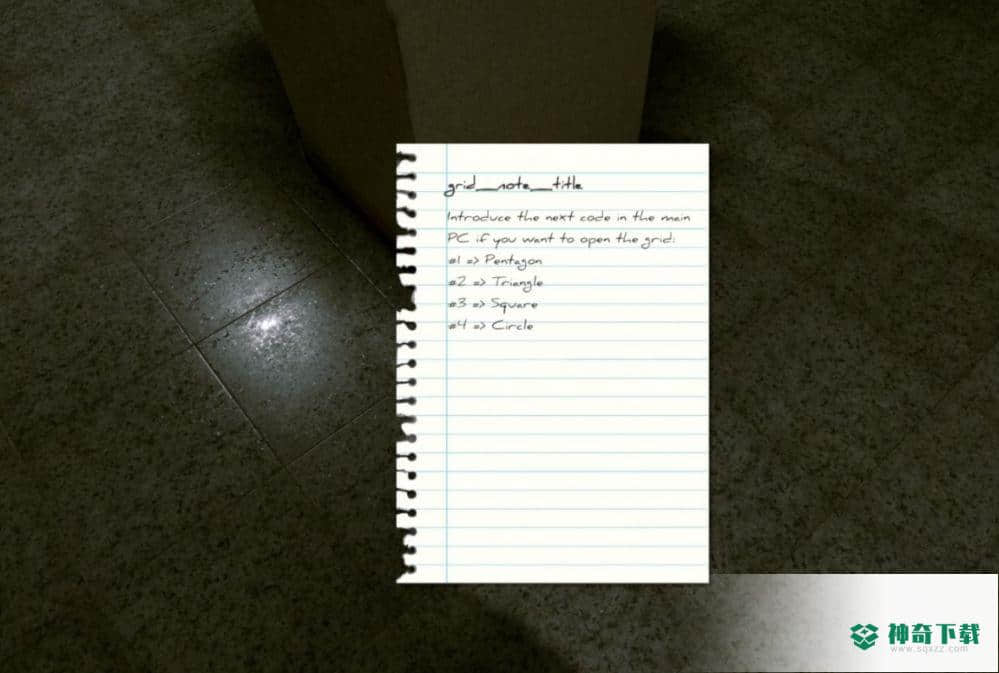 grid__note__title
Introduce the next code in the main
PC if you want to open the grid:
#1 => Pentagon
#2 => Triangle
#3 => Square
#4 => Circle
神奇下载
www.sqxzz.com